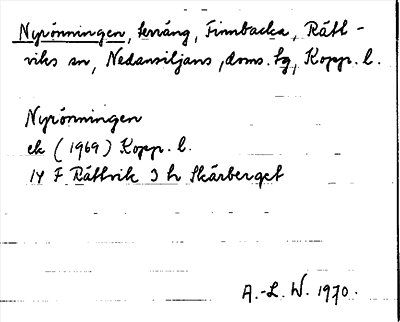 Nyrönningen, terräng, Finnbacka, Rätt-
viks sn, Nedansiljans, doms. tg, Kopp. l.
Nyrönningen
ek (1969) Kopp. l.
14 F Rättvik 3 h Skärberget
A.-L. W. 1970.